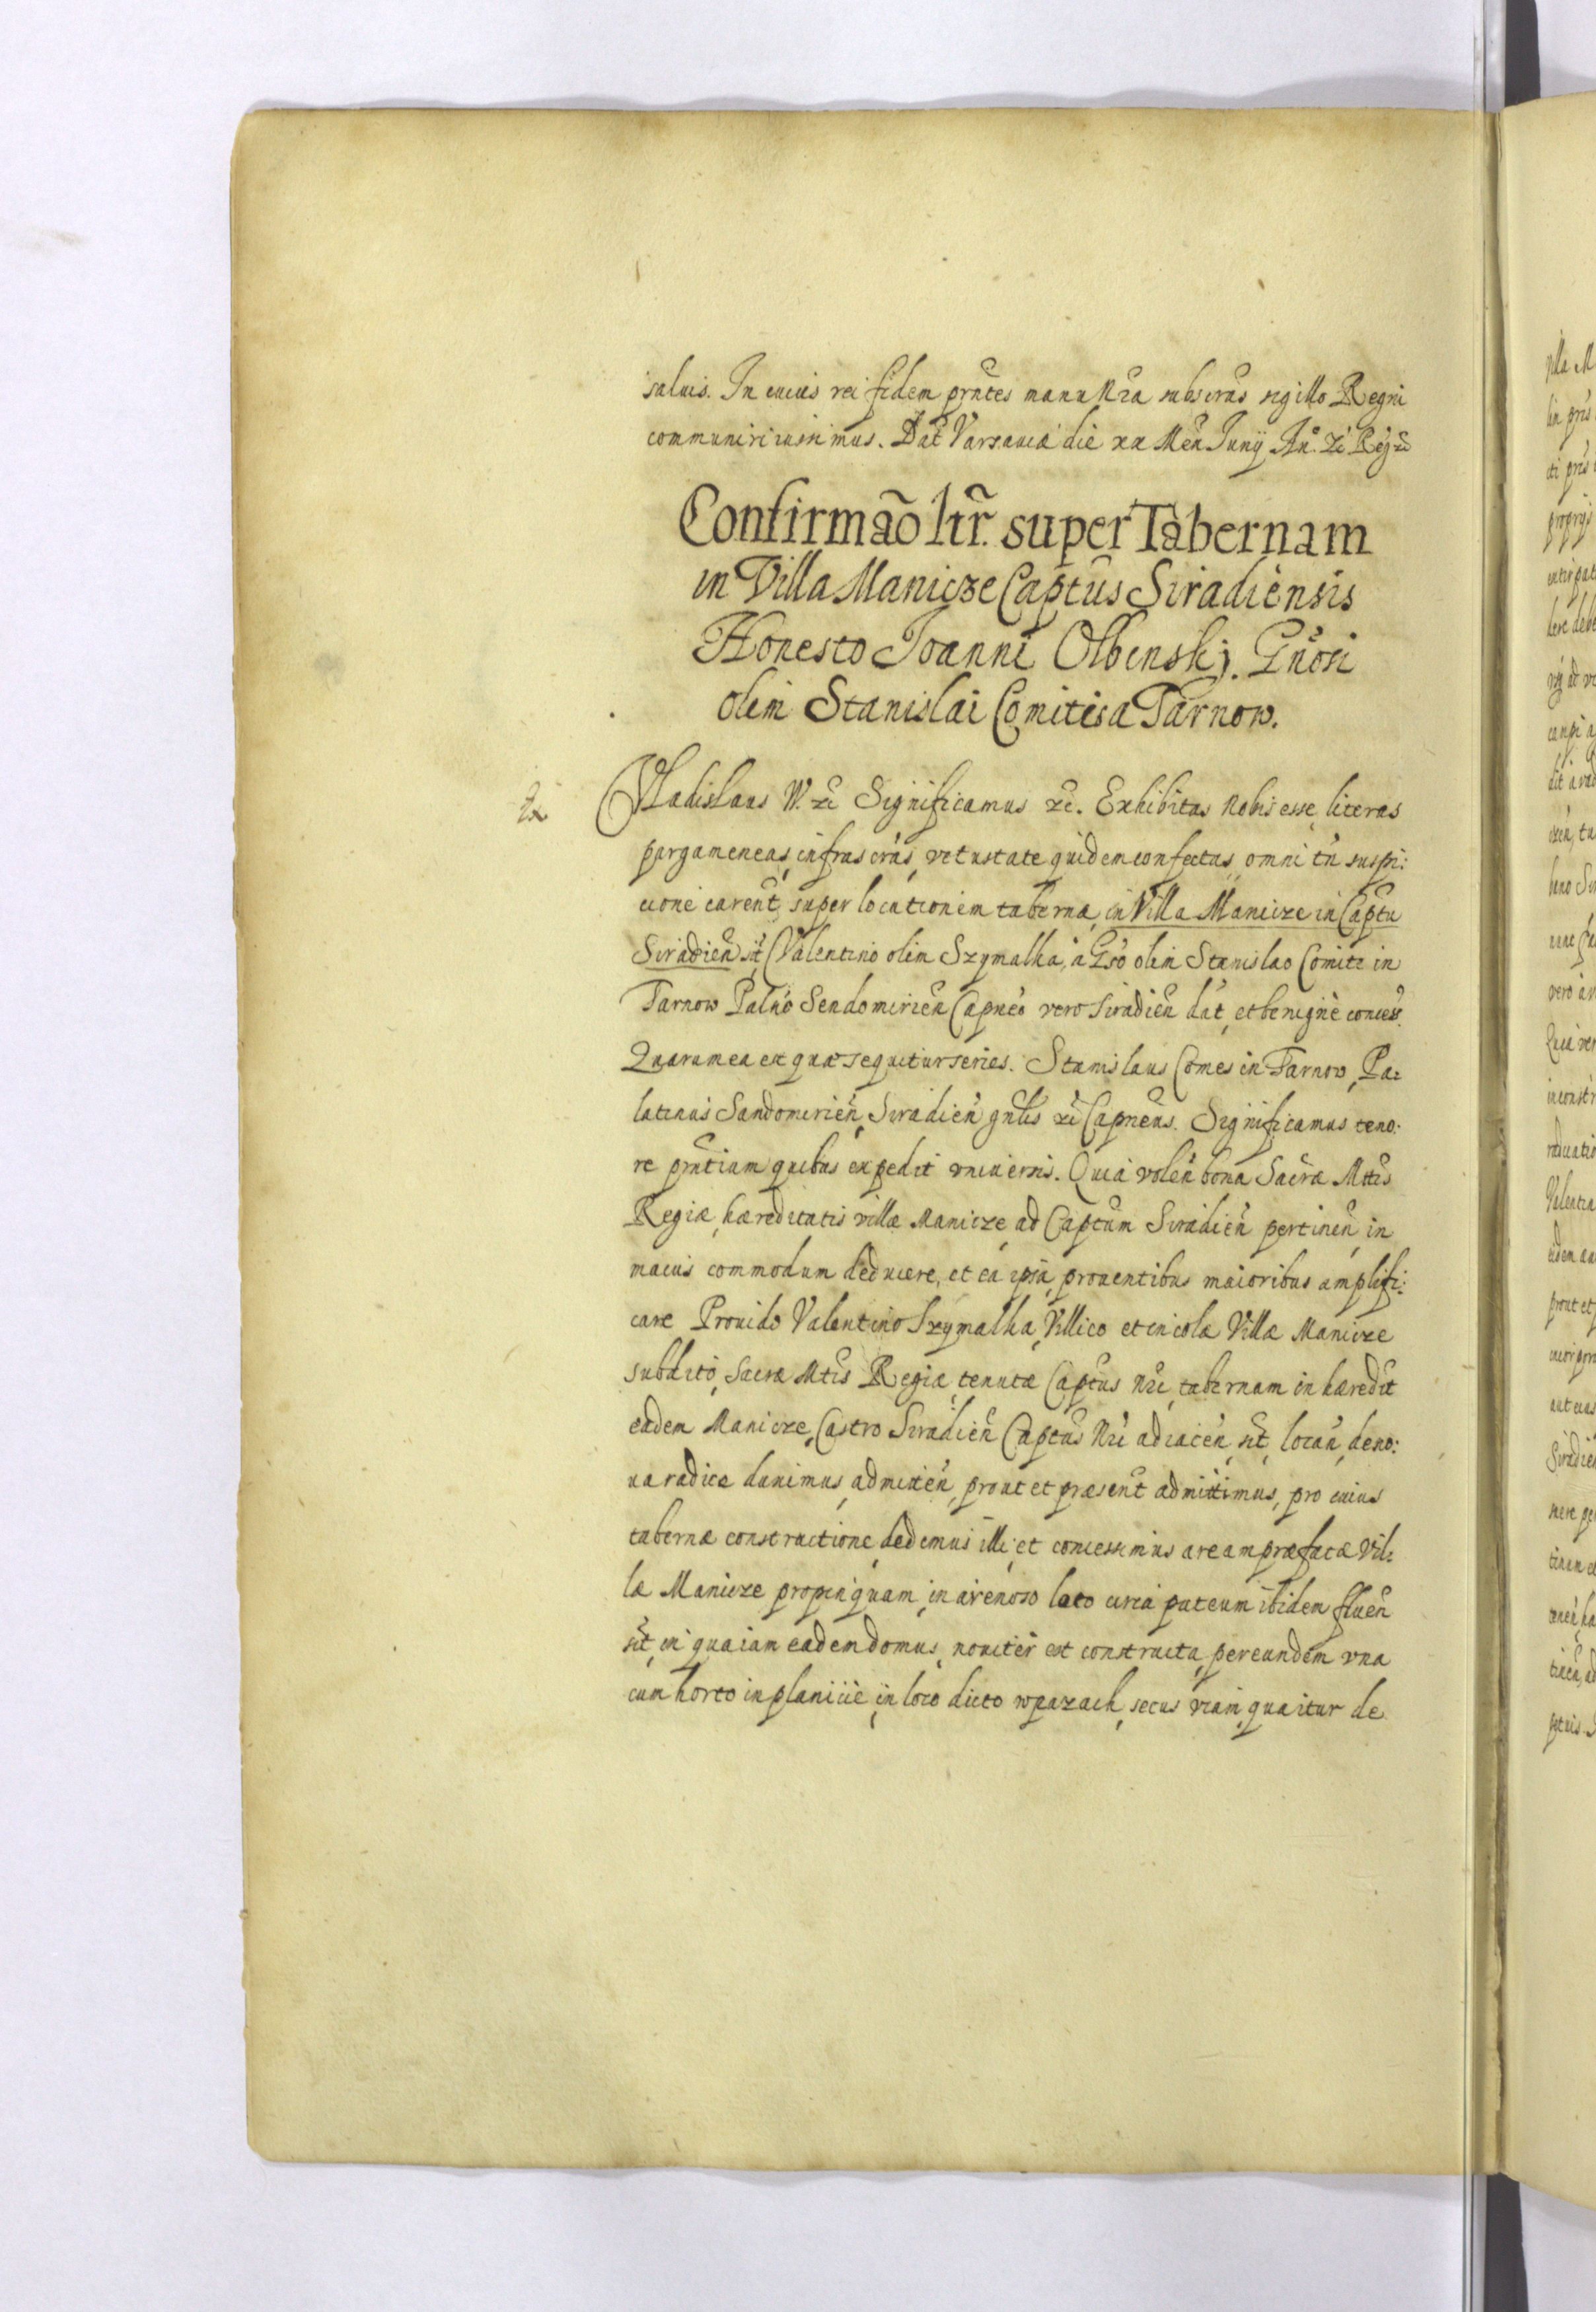 saluis. In cuius rei fidem prntes manu Nra subscras sigillo Regni
communiri iussimus. Dat Varsauiæ die xx Men Junij An. zc Reg zc
Confirmão ltr. super Tabernam
in Villa Manicze Captus Siradiensis
Honesto Joanni Olbinskj. Gnosi
olim Stanislai Comitis a Tarnow.
Vladislaus IV. zc Significamus zc. Exhibitas Nobis esse literas
pargameneas, infrascras, vetustate quidem confectas, omni tn suspi:
cione carent super locationem tabernæ, in Villa Manicze in Captu
Siradien sit, Valentino olim Szymalka, à Gso olim Stanislao Comite in
Tarnow Palno Sendomirien Capneo vero Siradien dat, et benignè concess.
Quarum ea est quæ sequitur series. Stanislaus Comes in Tarnow, Pa:
latinus Sandomirien, Siradien gnlis zc Capneus. Significamus teno:
re prntium quibus expedit vniuersis. Quia volen bona Sacræ Mttis
Regiæ, hæreditatis villæ Manicze, ad Captum Siradien pertinen, in
maius commodum deducere, et ea ipsa, prouentibus maioribus amplifi:
care Prouido Valentino Szymalka, Villico et incolæ Villæ Manicze
subdito, Sacræ Mtis Regiæ, tenutæ Captus Nri, tabernam in hæredit
eadem Manicze, Castro Siradien Captus Nri adiacen, sit, locan, de no:
ua radice duximus, admitten, prout et præsent admittimus, pro cuius
tabernæ constructione, dedimus illi, et concessimus aream præfatæ Vil:
læ Manicze propinquam, in arenoso lato circa puteum ibidem fluen
sit, in qua iam eadem domus, nouiter est constructa, per eundem vna
cum horto in planicie, in loco dicto wpazach, secus viam, qua itur de